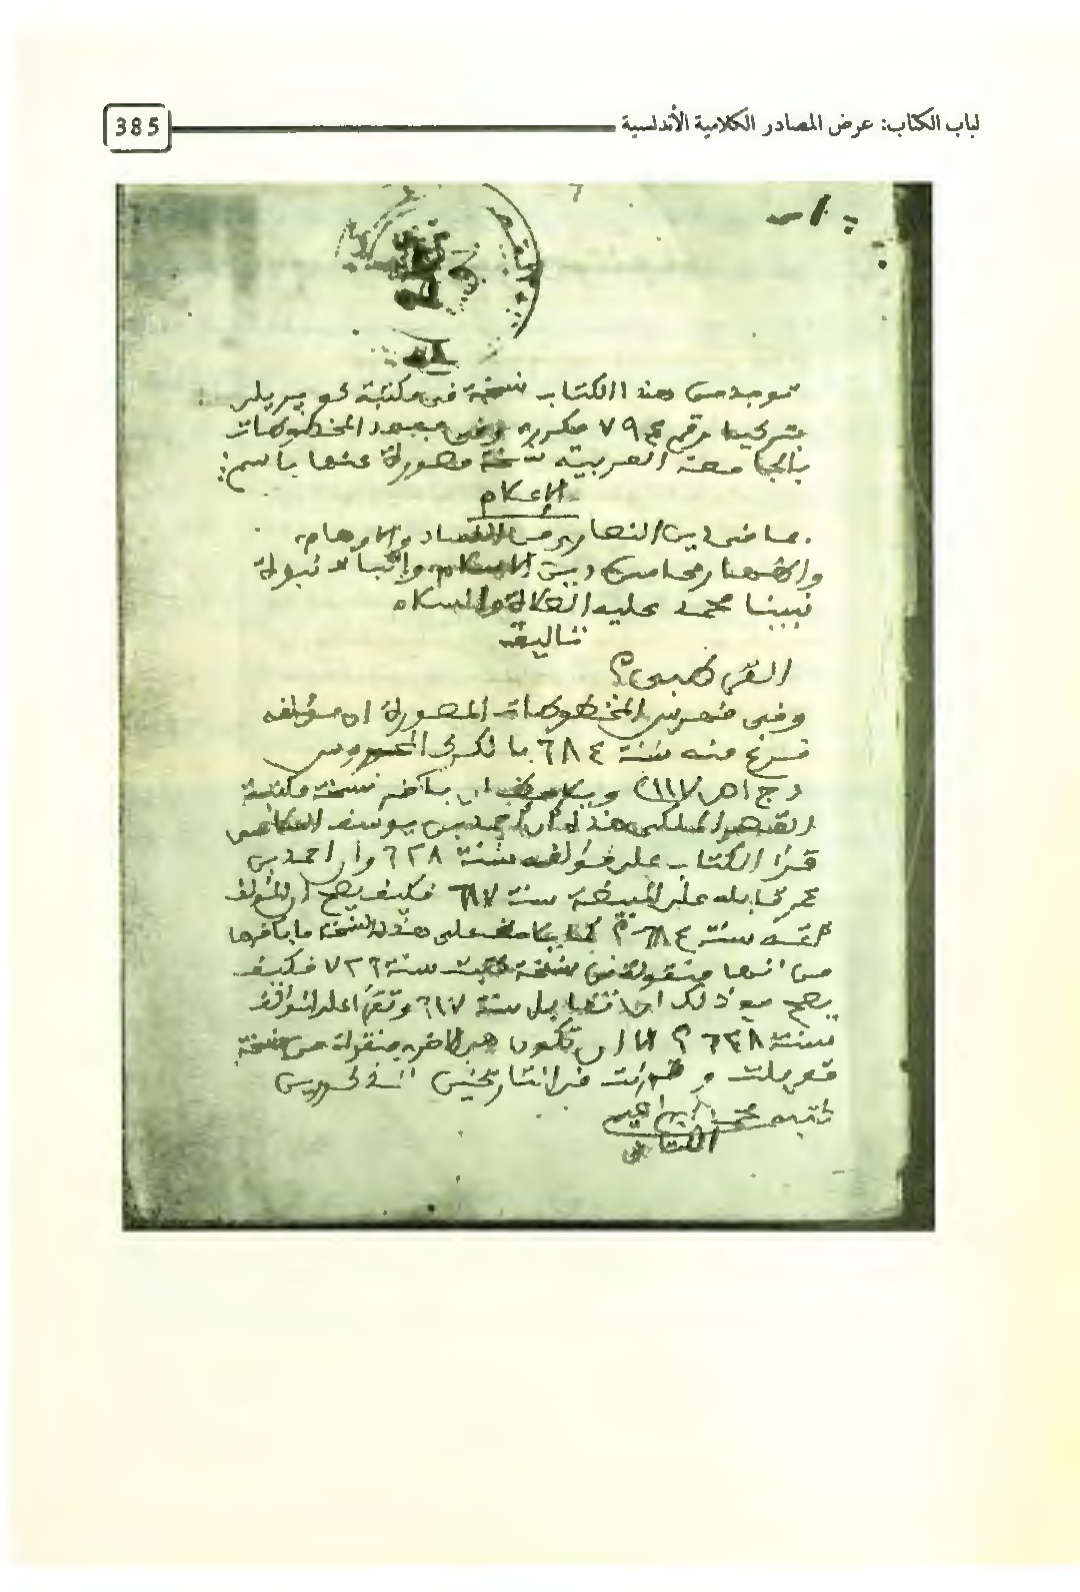 لباب الكتاب: عرض المصادر الكلامية الأندلسية
385
توجد من هذا الكتاب نسخة في مكتبة كوبريلي
بتركيا رقم ٧٩٤ مكرره وفي معهد المخطوطات
بالجامعة العربية نسخة مصورة عنها باسم:
الإعلام
بما في دين النصارى من الفساد والاوهام
واظهار محاسن دين الاسلام واثبات نبوة
نبينا محمد عليه الصلاة والسلام
تاليف
القرطبي؟
وفي فهرس المخطوطات المصورة ان مؤلفه
فرغ منه سنة ٦٨٤
(ج ١ ص ١١٧) بآخر نسخة مكتبة
احمد بن يوسف
قرأ الكتاب على مؤلفه سنة ٦٢٨ وان احمد بن
عمر قابله على المبيضة سنة ٦١٧ فكيف يصح ان المؤلف
الفه سنة ٦٨٤؟ على هذه النسخة ما بآخرها
من انها منقولة من نسخة كتبت سنة ٧٢٦ فكيف
يصح مع ذلك ان تقابل سنة ٦١٧ وتقرأ على المؤلف
سنة ٦٢٨؟ الا ان تكون هي الاخرى منقولة من نسخة
قوبلت و قرئت في التاريخين
كتبه محمد ابراهيم
الكتاني